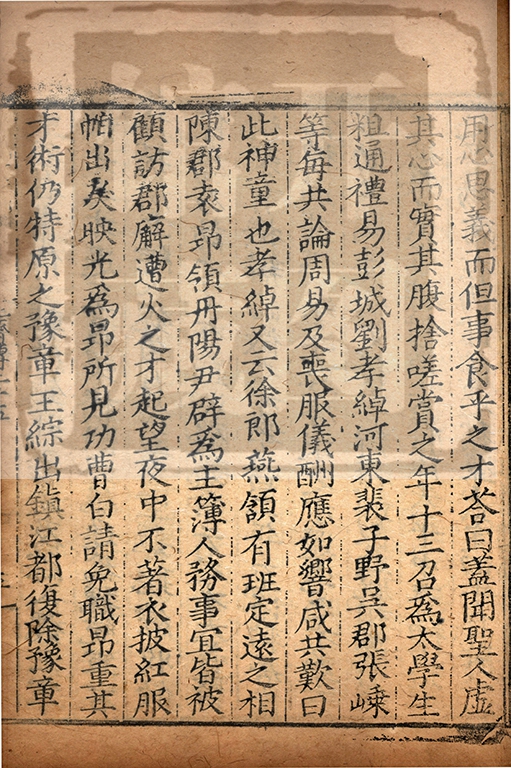 用心思義而但事食乎之才荅曰蓋聞聖人虛
其心而實其腹捨嗟賞之年十三召爲太學生
粗通禮易彭城劉孝綽河東裴子野吳郡張嵊
等每共論周易及喪服儀酬應如響咸共歎曰
此神童也孝綽又云徐郎燕頷有班定遠之相
陳郡袁昂領丹陽尹辟爲主簿人務事宜皆被
顧訪郡廨遭火之才起望夜中不著衣披紅服
帕出矣映光爲昂所見功曹白請免職昂重其
才術仍特原之豫章王綜出鎮江都復除豫章